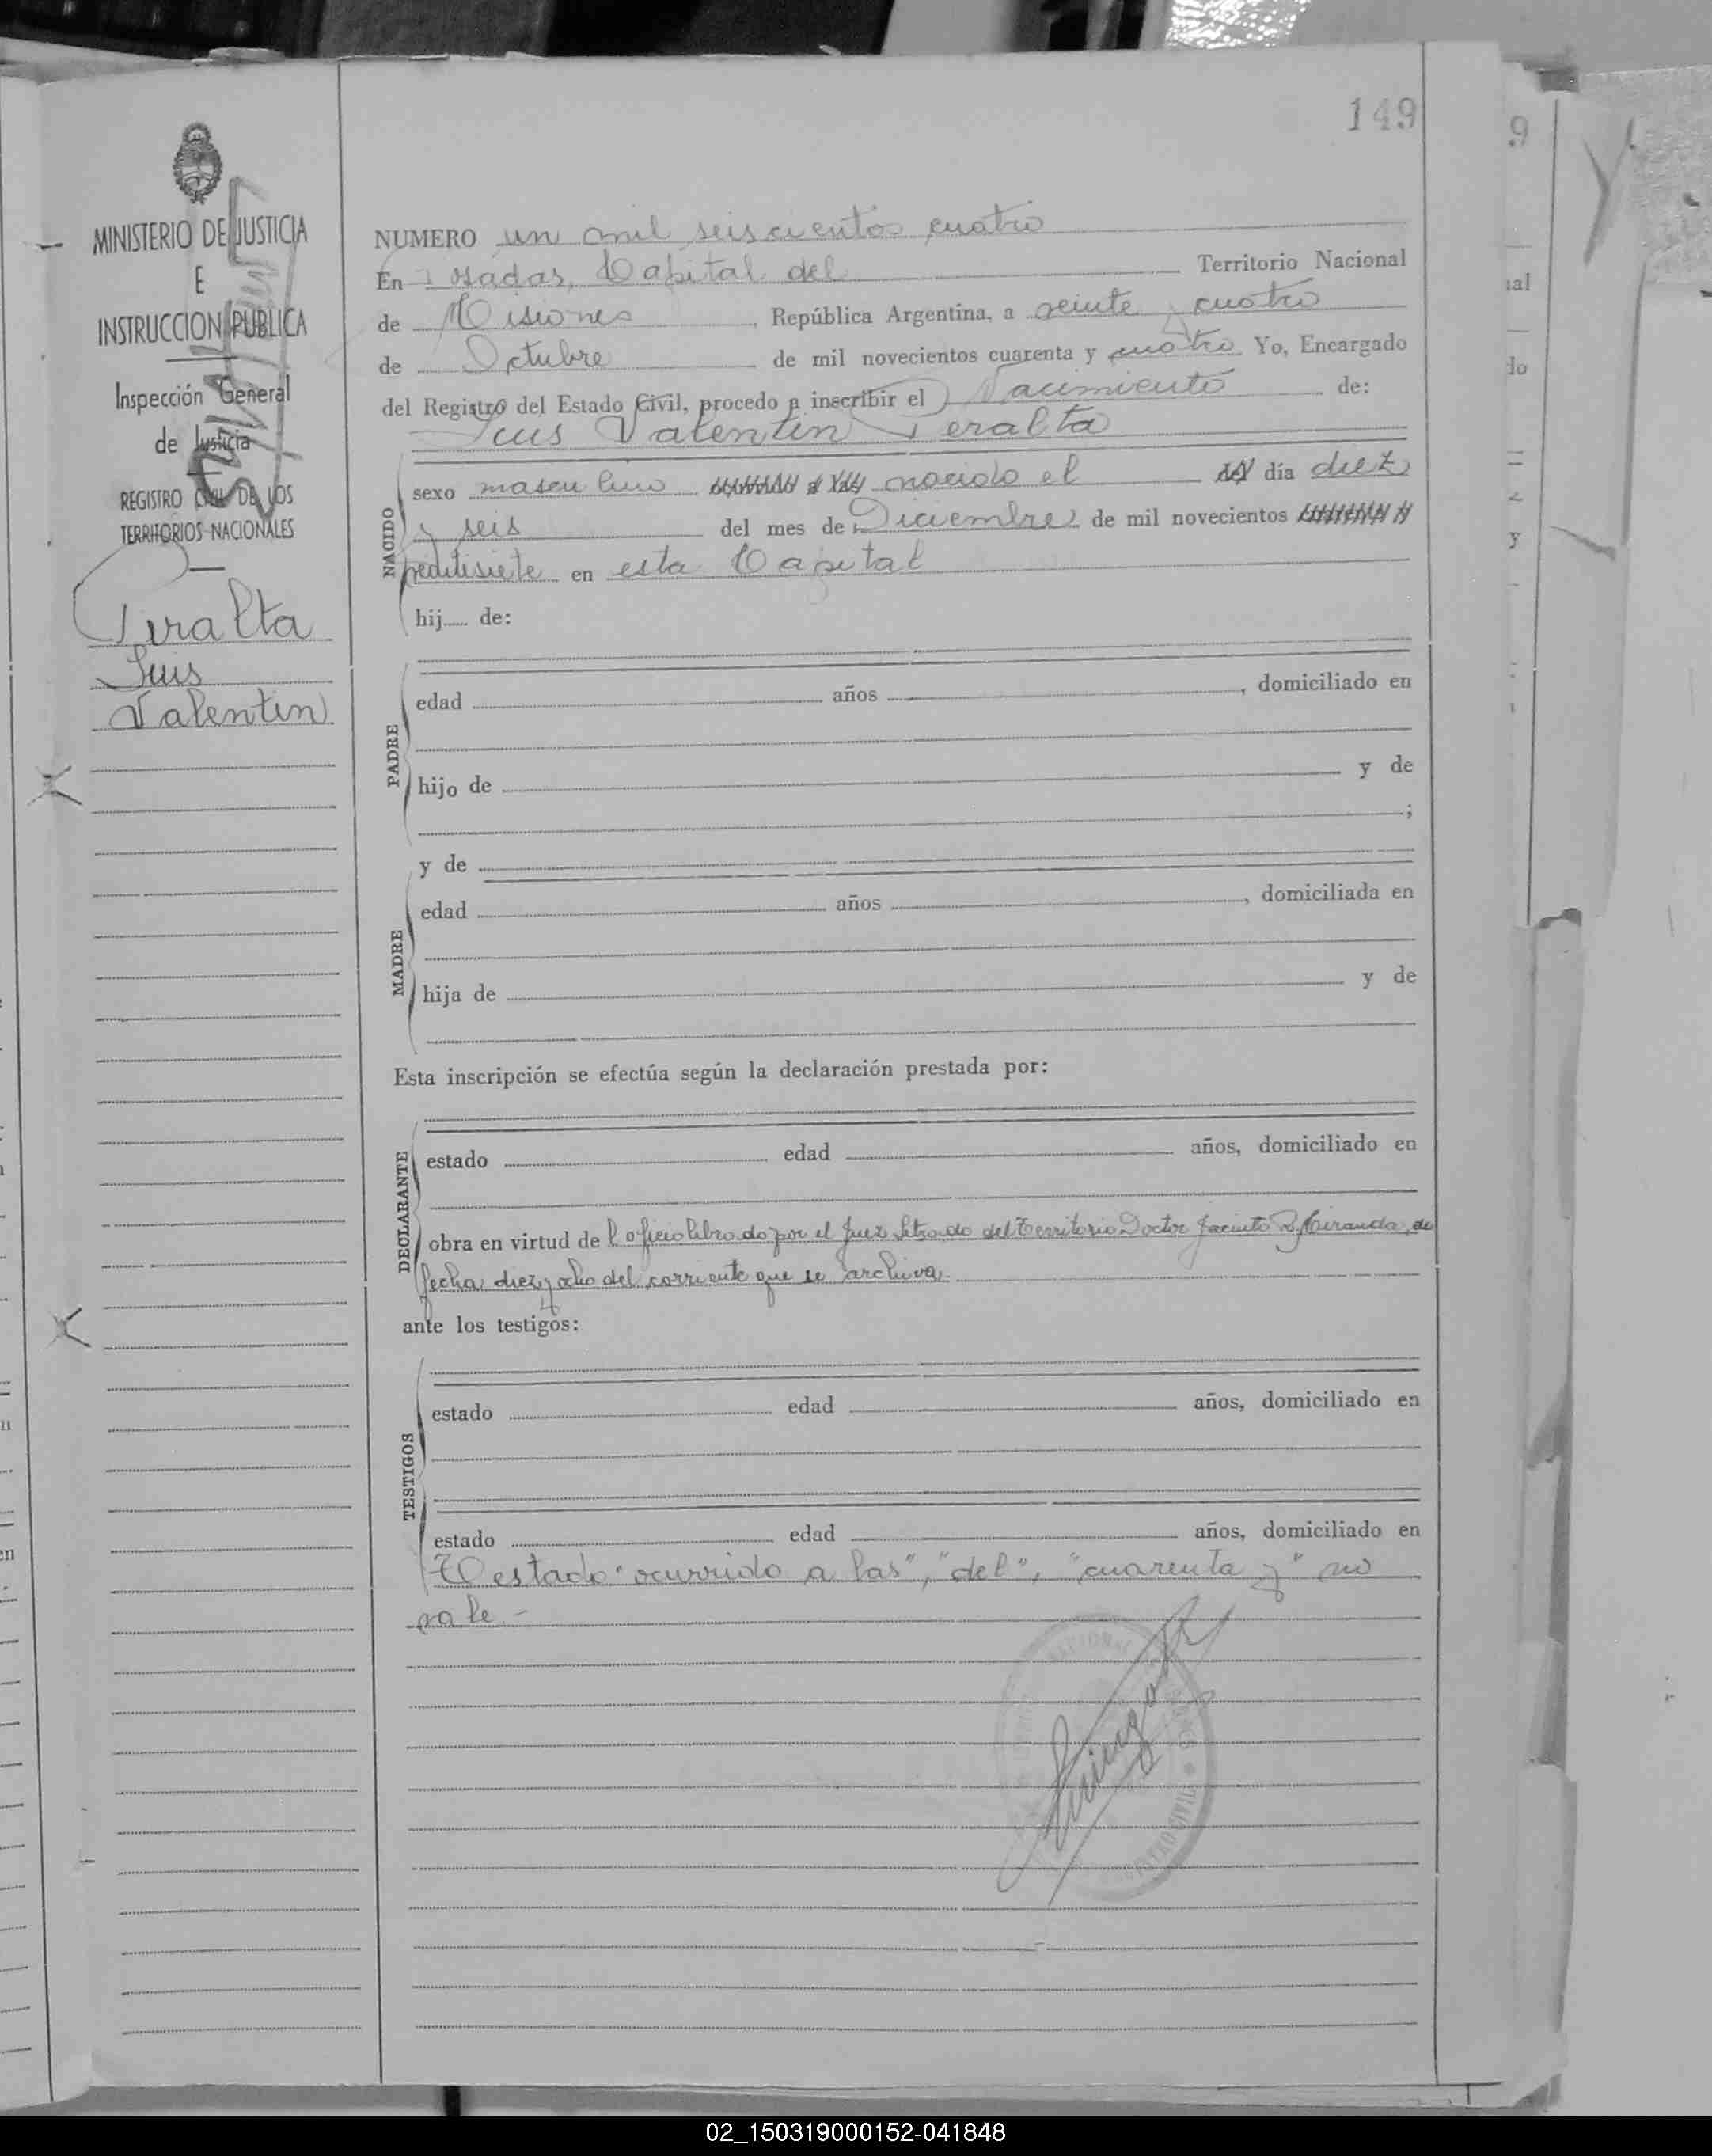 149
9
MINISTERIO DE JUSTICIA
E
INSTRUCCION PUBLICA
Inspección General
de Justicia
REGISTRO CIVIL DE LOS
TERRITORIOS NACIONALES
Peralta
Luis
Valentin
NUMERO un mil seiscientos cuatro
En Posadas, Capital del Territorio Nacional
de Misiones, República Argentina, a veinte y cuatro
de Octubre de mil novecientos cuarenta y cuatro Yo, Encargado
del Registro del Estado Civil, procedo a inscribir el Nacimiento de:
Luis Valentin Peralta
NACIDO
sexo masculino nacido el día diez
y seis del mes de Diciembre de mil novecientos
veintisiete en esta Capital
hij de:
PADRE
edad años, domiciliado en
hijo de y de
;
y de
MADRE
edad años, domiciliada en
hija de y de
Esta inscripción se efectúa según la declaración prestada por:
DECLARANTE
estado edad años, domiciliado en
obra en virtud de l oficio librado por el Juez Letrado del Territorio Doctor Jacinto R. Miranda, de
fecha diez y ocho del corriente que se archiva
ante los testigos:
TESTIGOS
estado edad años, domiciliado en
estado edad años, domiciliado en
Testado "ocurrido a las", "del", "cuarenta y" no
vale.-
02_150319000152-041848